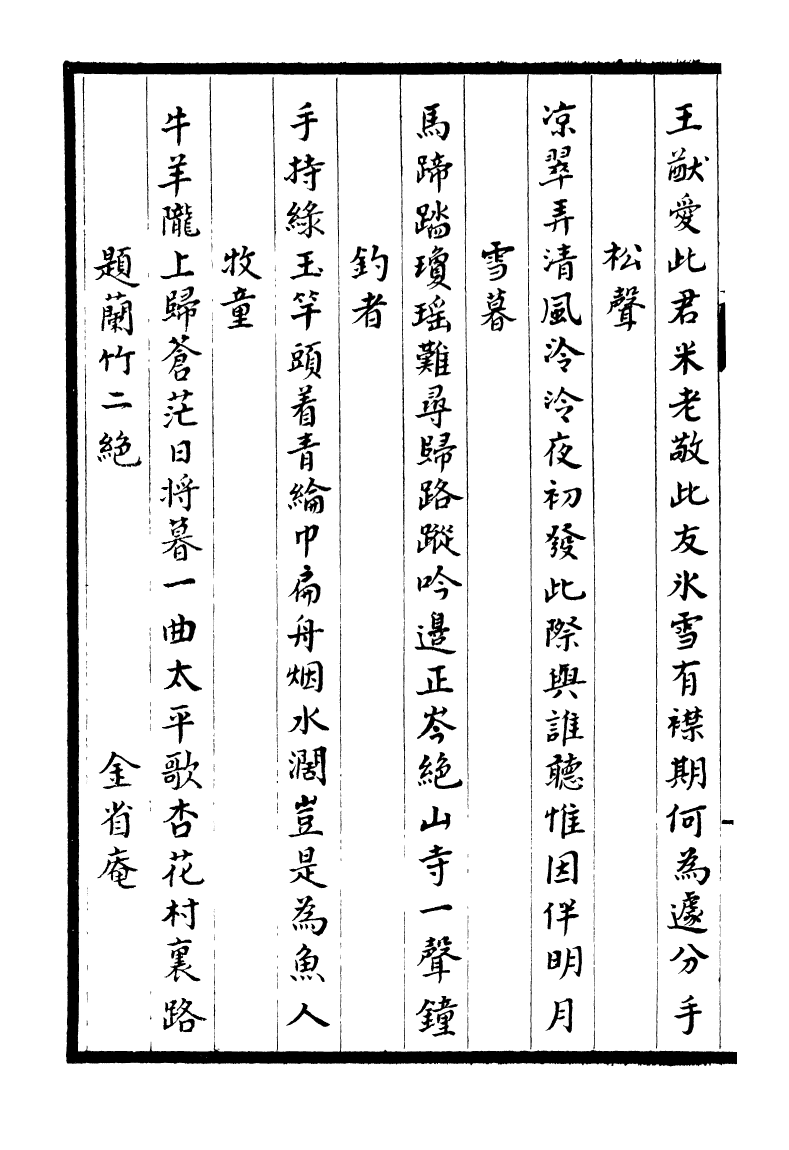 王猷愛此君米老敬此友氷雪有襟期何為遽分手
松聲
凉翠弄清風泠泠夜初發此際與誰聽惟因伴明月
雪暮
馬蹄踏瓊瑶難尋歸路蹤吟邊正岑絕山寺一聲鐘
釣者
手持綠玉竿頭着青綸巾扁舟烟水濶豈是為魚人
牧童
牛羊隴上歸蒼茫日将暮一曲太平歌杏花村裏路
題蘭竹二絕 金省庵